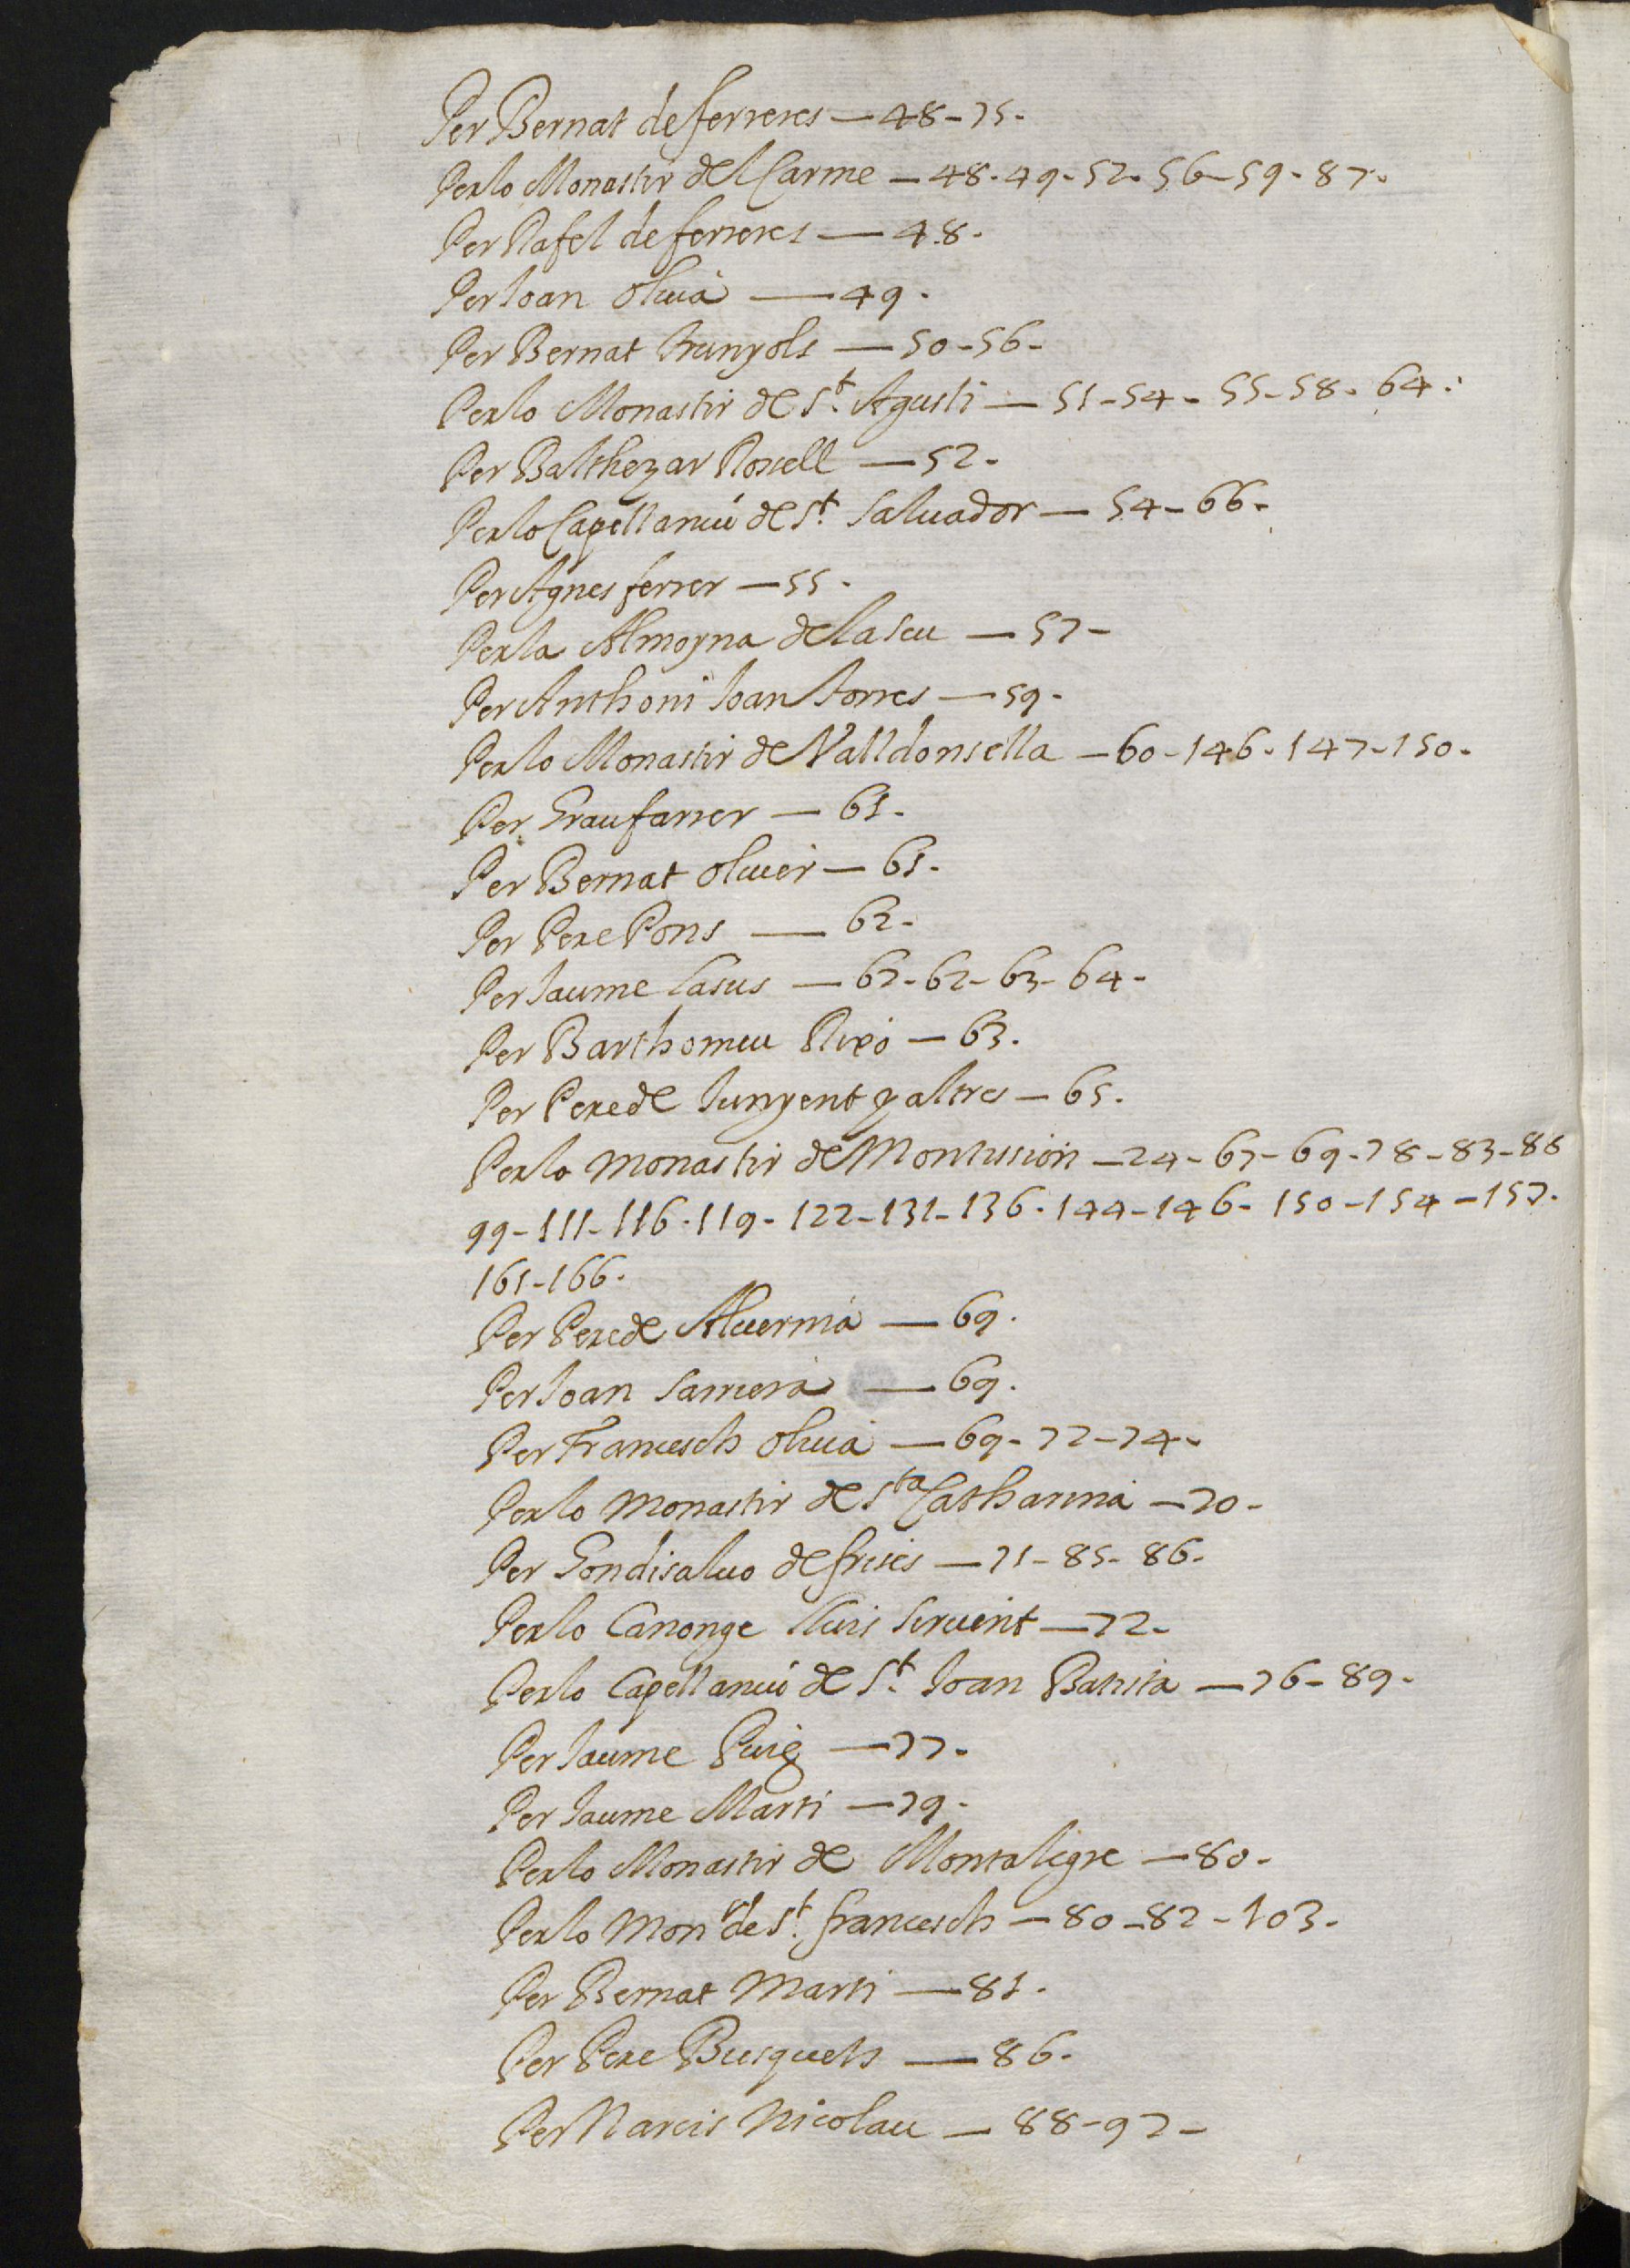 Per Bernat de ferreres — 48 - 75 -
Per lo Monastir del Carme — 48 - 49 - 52 - 56 - 59 - 87 -
Per Rafel de ferreres — 48 -
Per Joan Oliua — 49 -
Per Bernat Brunyols — 50 - 56 -
Per lo Monastir de St. Agusti — 51 - 54 - 55 - 58 - 64 -
Per Balthezar Roxell — 52 -
Per lo Capellaniú de St. Saluador — 54 - 66 -
Per Agnes ferrer — 55 -
Per la Almoyna de la Seu — 57 -
Per Anthoni Joan torres — 59 -
Per lo Monastir de Valldonsella — 60 - 146 - 147 - 150 -
Per Grau farrer — 61 -
Per Bernat Oliuer — 61 -
Per Pere Pons — 62 -
Per Jaume Casus — 62 - 62 - 63 - 64 -
Per Barthomeu Ripo — 63 .
Per Pere de Junyent y altres — 65 .
Per lo Monastir de Montusion — 24 - 67 - 69 - 78 - 83 - 88
99 - 111 - 116 - 119 - 122 - 131 - 136 - 144 - 146 - 150 - 154 - 157 -
161 - 166 -
Per Pere de Aluernia — 69 .
Per Joan Sarriera — 69 .
Per Francesch Oliua — 69 - 72 - 74 -
Per lo Monastir de Sta Catharina — 70 -
Per Gondisaluo de frises — 71 - 85 - 86 -
Per lo Canonge Lluis Seruent — 72 -
Per lo Capellaniú de St. Joan Batista — 76 - 89 -
Per Jaume Puig — 77 -
Per Jaume Marti — 79 -
Per lo Monastir de Montalegre — 80 -
Per lo Monr de St. francesch — 80 - 82 - 103 -
Per Bernat Marti — 81 .
Per Pere Busquets — 86 -
Per Narcis Nicolau — 88 - 97 -